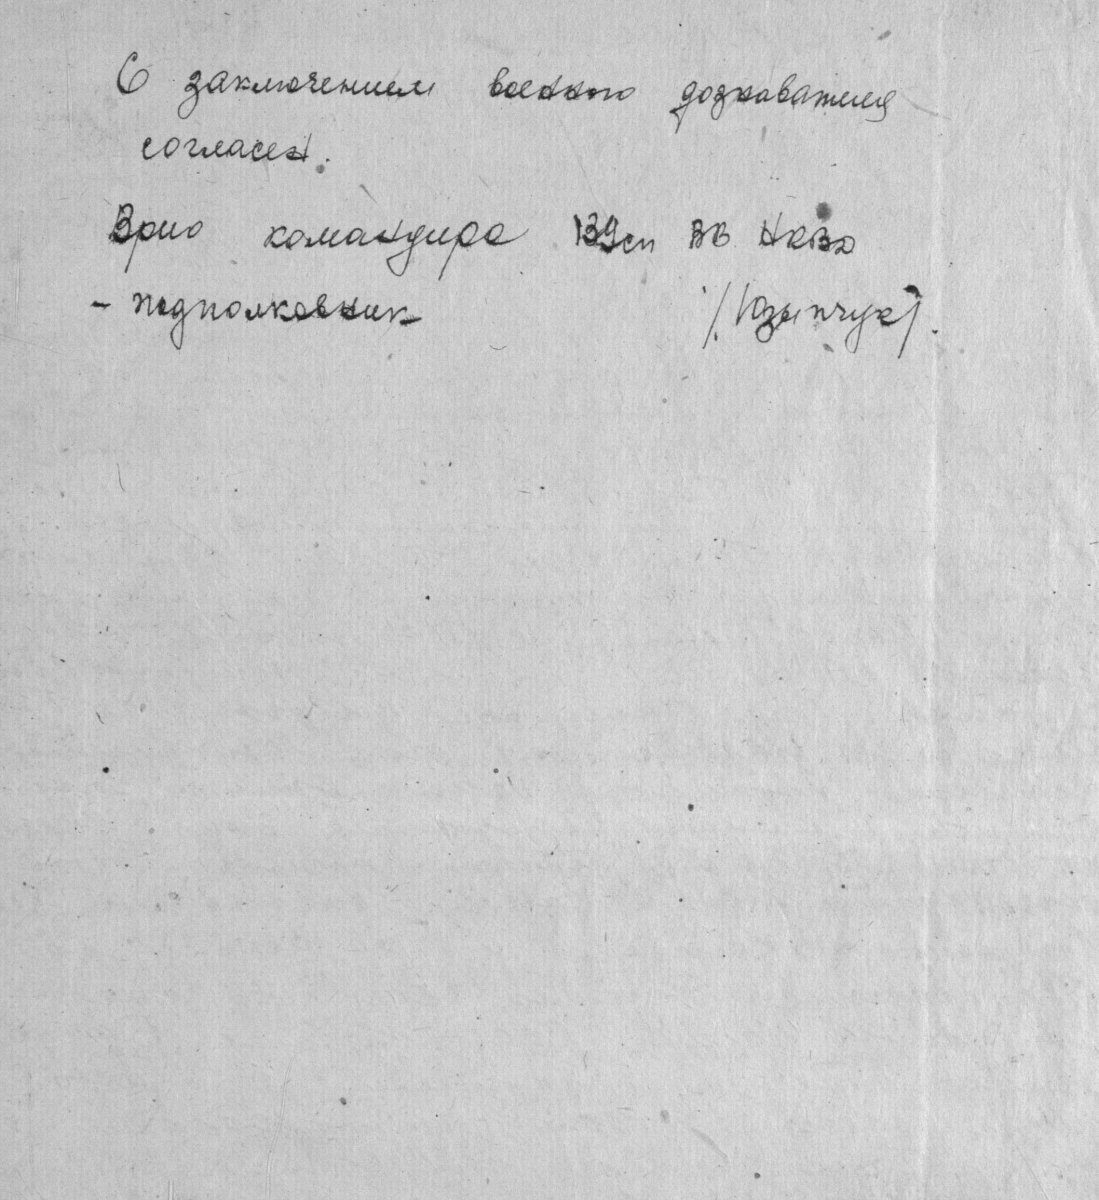 С заключением военного дознавателя
согласен.
Врио командира 139 сп ВВ НКВД
- подполковник